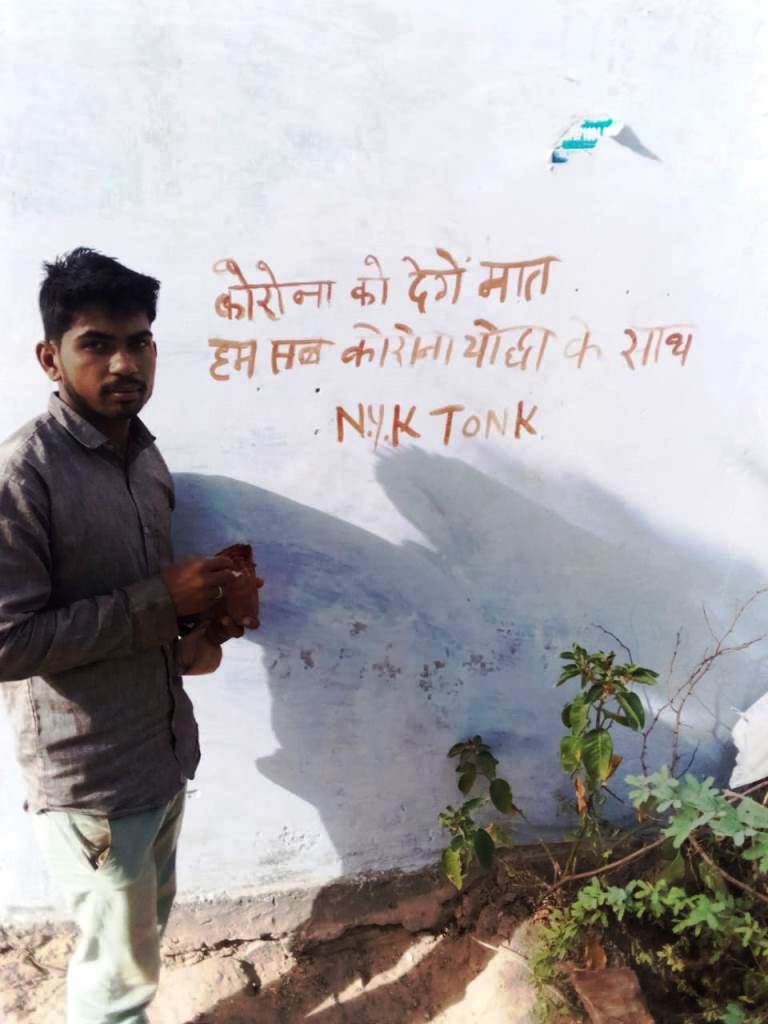 कोरोना को देगें मात
हम सब कोरोना योद्धा के साथ
N.Y.K TONK